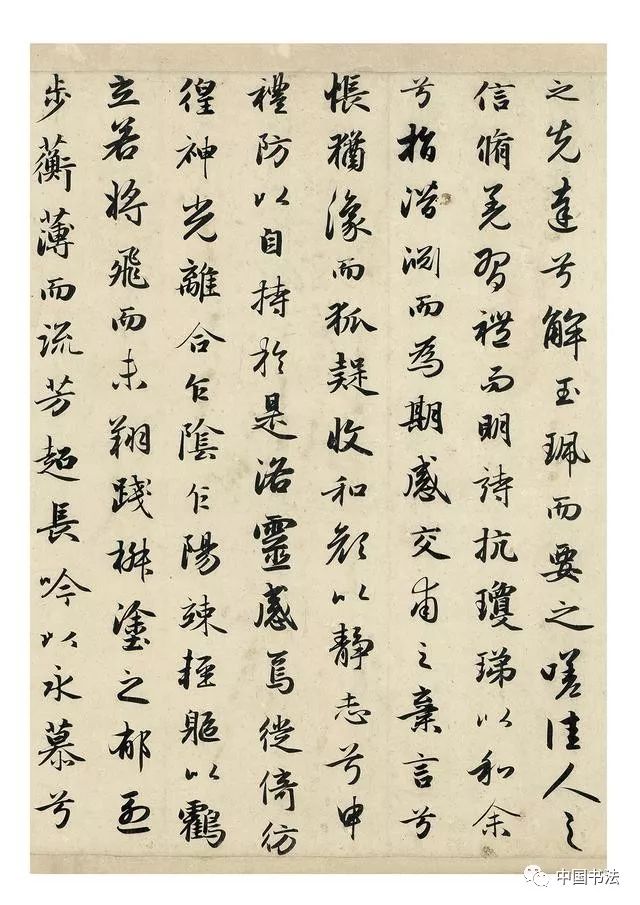 之先達兮解玉珮而要之嗟佳人之
信脩羌習禮而明詩抗瓊珶以和余
兮指潛淵而為期感交甫之棄言兮
悵猶豫而狐疑收和顏以靜志兮申
禮防以自持於是洛靈感焉徙倚彷
徨神光離合乍陰乍陽竦輕軀以鸖
立若將飛而未翔踐椒塗之郁烈
步蘅薄而流芳超長吟以永慕兮
中国书法